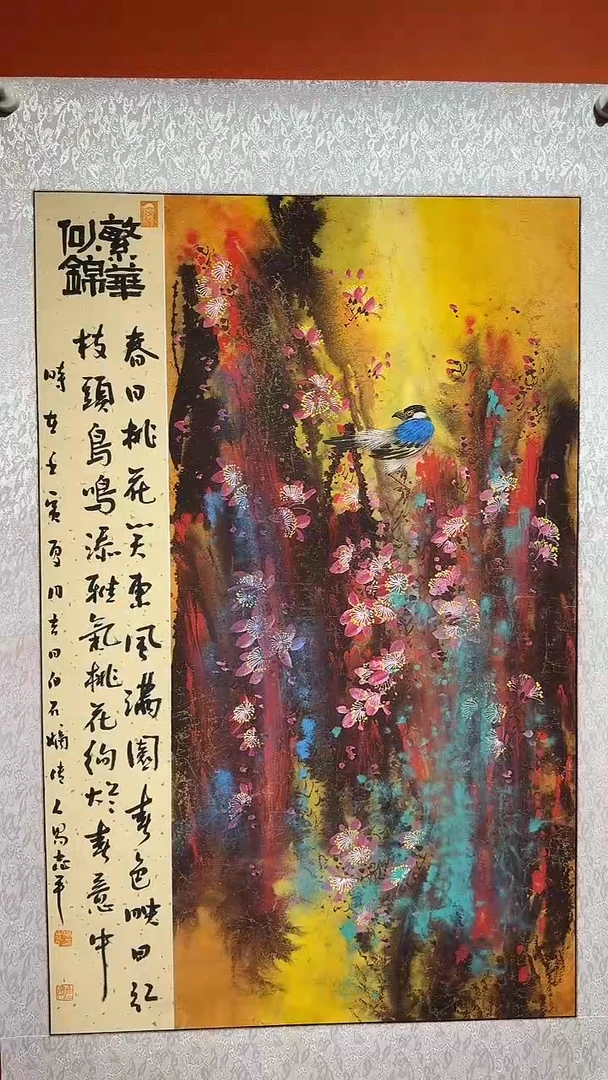 繁華
似錦
春日桃花笑東風滿園春色映日紅
枝頭鳥鳴添雅氣桃花絢烂春意中
時在壬寅夏月吉日白石嫡傳人易志平